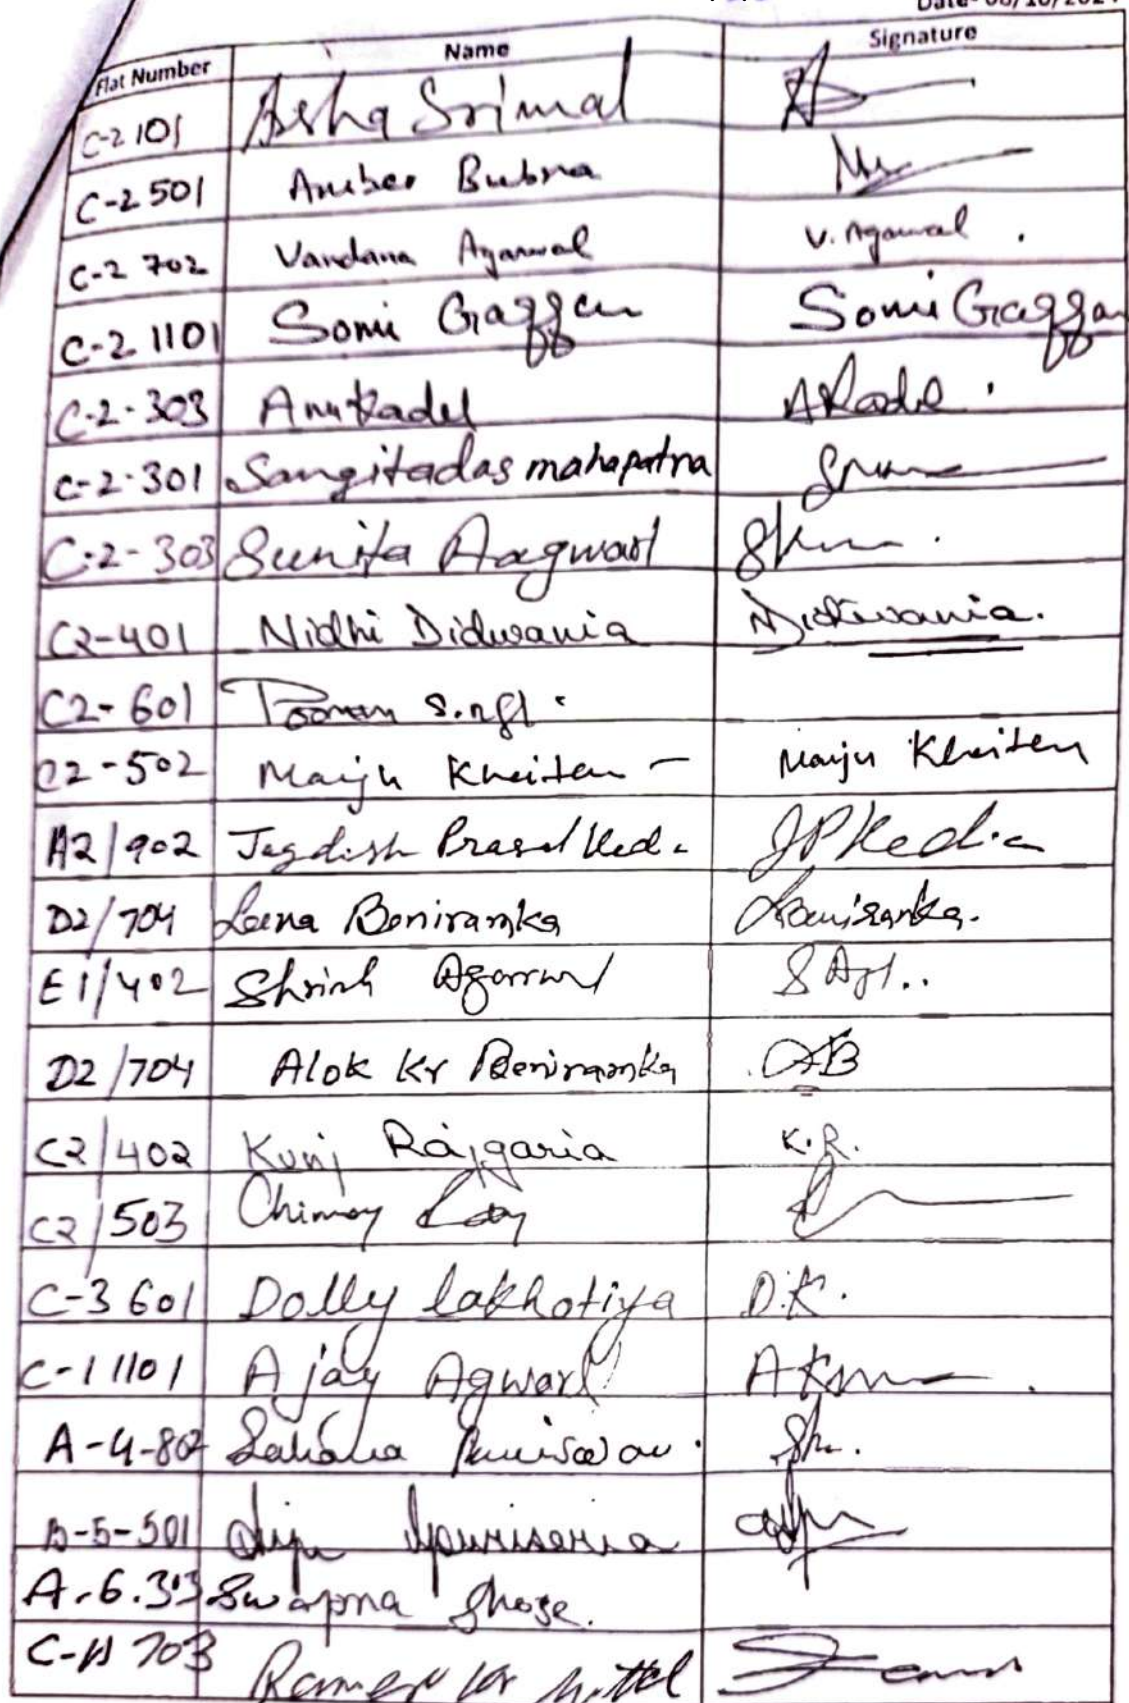 Date- 08/10/2024
Flat Number Name Signature
C-2 101 Asha Srimal
C-2 501 Amber Bubna
C-2 702 Vandana Agarwal V. Agarwal .
C-2 1101 Somi Gaggar Somi Gaggar
C-2-303 Anu Kadel AKadel .
C-2-301 Sangitadas mahapatra
C-2-303 Sunita Aagwarl
C2-401 Nidhi Didwania N.Didwania.
C2-601 Poonam Singh
C2-502 Manju Kheitan - Manju Kheitan
A2/902 Jagdish Prasad Kedia JPKedia
D2/704 Leena Beniramka LBeniramka.
E1/402 Agarwal
D2/704 Alok Kr Beniramka AB
C2/402 Kunj Rajgaria K.R.
C2/503 Chinmoy Roy
C-3 601 Dolly lakhotiya D.K.
C-1 1101 Ajay Agwarl
A-4-802
501
A-6.303 Swapna Ghose.
703 Ramesh Kr Mittal